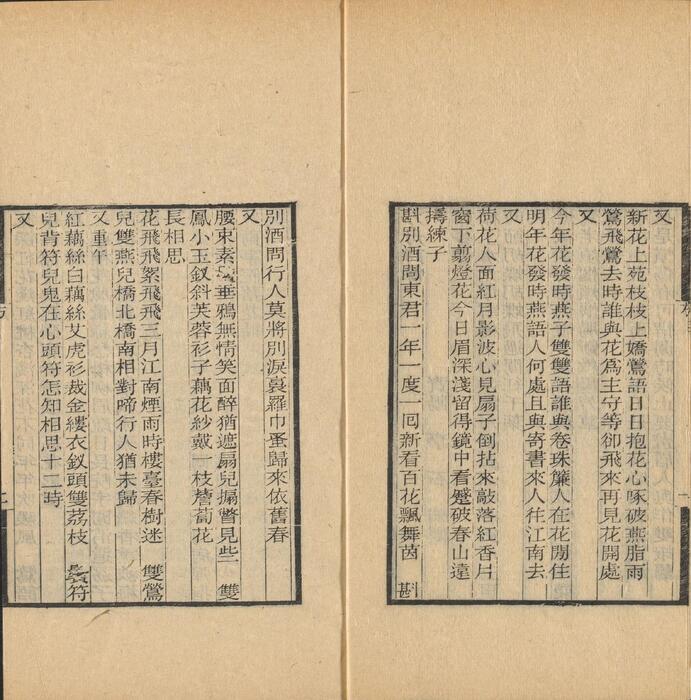 又
新花上苑枝枝上嬌鶯語日日抱花心啄破燕脂雨
鶯飛鶯去時誰與花爲主守等卻飛來再見花開處
又
今年花發時燕子雙雙語誰與卷珠簾人在花閒住
明年花發時燕語人何處且與寄書來人往江南去
又
荷花人面紅月影波心見扇子倒拈來敲落紅香片
窗下翦燈花今日眉深淺留得鏡中看蹙破春山遠
擣練子
斟別酒問東君一年一度一回新看百花飄舞茵　斟
別酒問行人莫將別淚裛羅巾蚤歸來依舊春
又
腰束素 垂鴉無情笑面醉猶遮扇兒搧瞥見些　雙
鳳小玉釵斜芙蓉衫子藕花紗戴一枝薝蔔花
長相思
花飛飛絮飛飛三月江南煙雨時樓臺春樹迷　雙鶯
兒雙燕兒橋北橋南相對啼行人猶未歸
又重午
紅藕絲白藕絲艾虎衫裁金縷衣釵頭雙荔枝　鬢符
兒背符兒鬼在心頭符怎知相思十二時